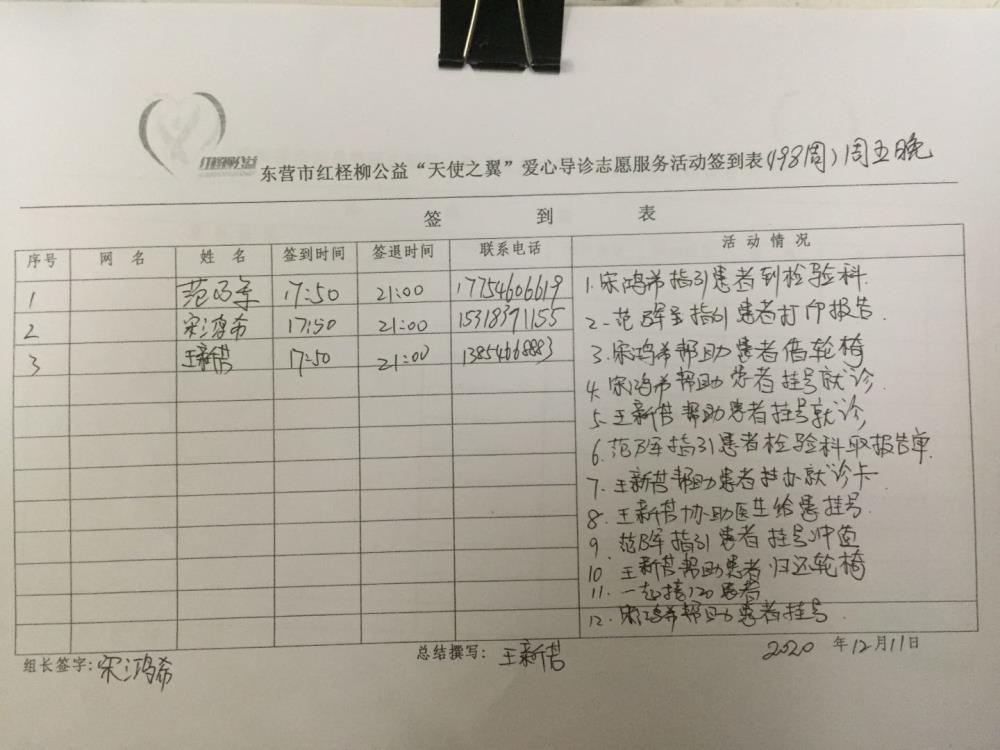 红柽柳公益
东营市红柽柳公益“天使之翼”爱心导诊志愿服务活动签到表(198周)周五晚
签 到 表
序号 网 名 姓 名 签到时间 签退时间 联系电话 活 动 情 况
1 范 17:50 21:00 17754606619
2 宋鸿希 17:50 21:00 15318371155
3 王新苦 17:50 21:00 13854668883
1.宋鸿希指引患者到检验科
2.范 指引患者打印报告.
3.宋鸿希帮助患者借轮椅
4.宋鸿希帮助患者挂号就诊.
5.王新苦帮助患者挂号就诊,
6.范 指引患者检验科取报告单.
7.王新苦帮助患者挂办就诊卡
8.王新苦协助医生给患挂号.
9.范 指引患者挂号冲值
10.王新苦帮助患者归还轮椅
11.一起接120患者
12.宋鸿希帮助患者挂号.
组长签字:宋鸿希 总结撰写:王新苦 2020年12月11日